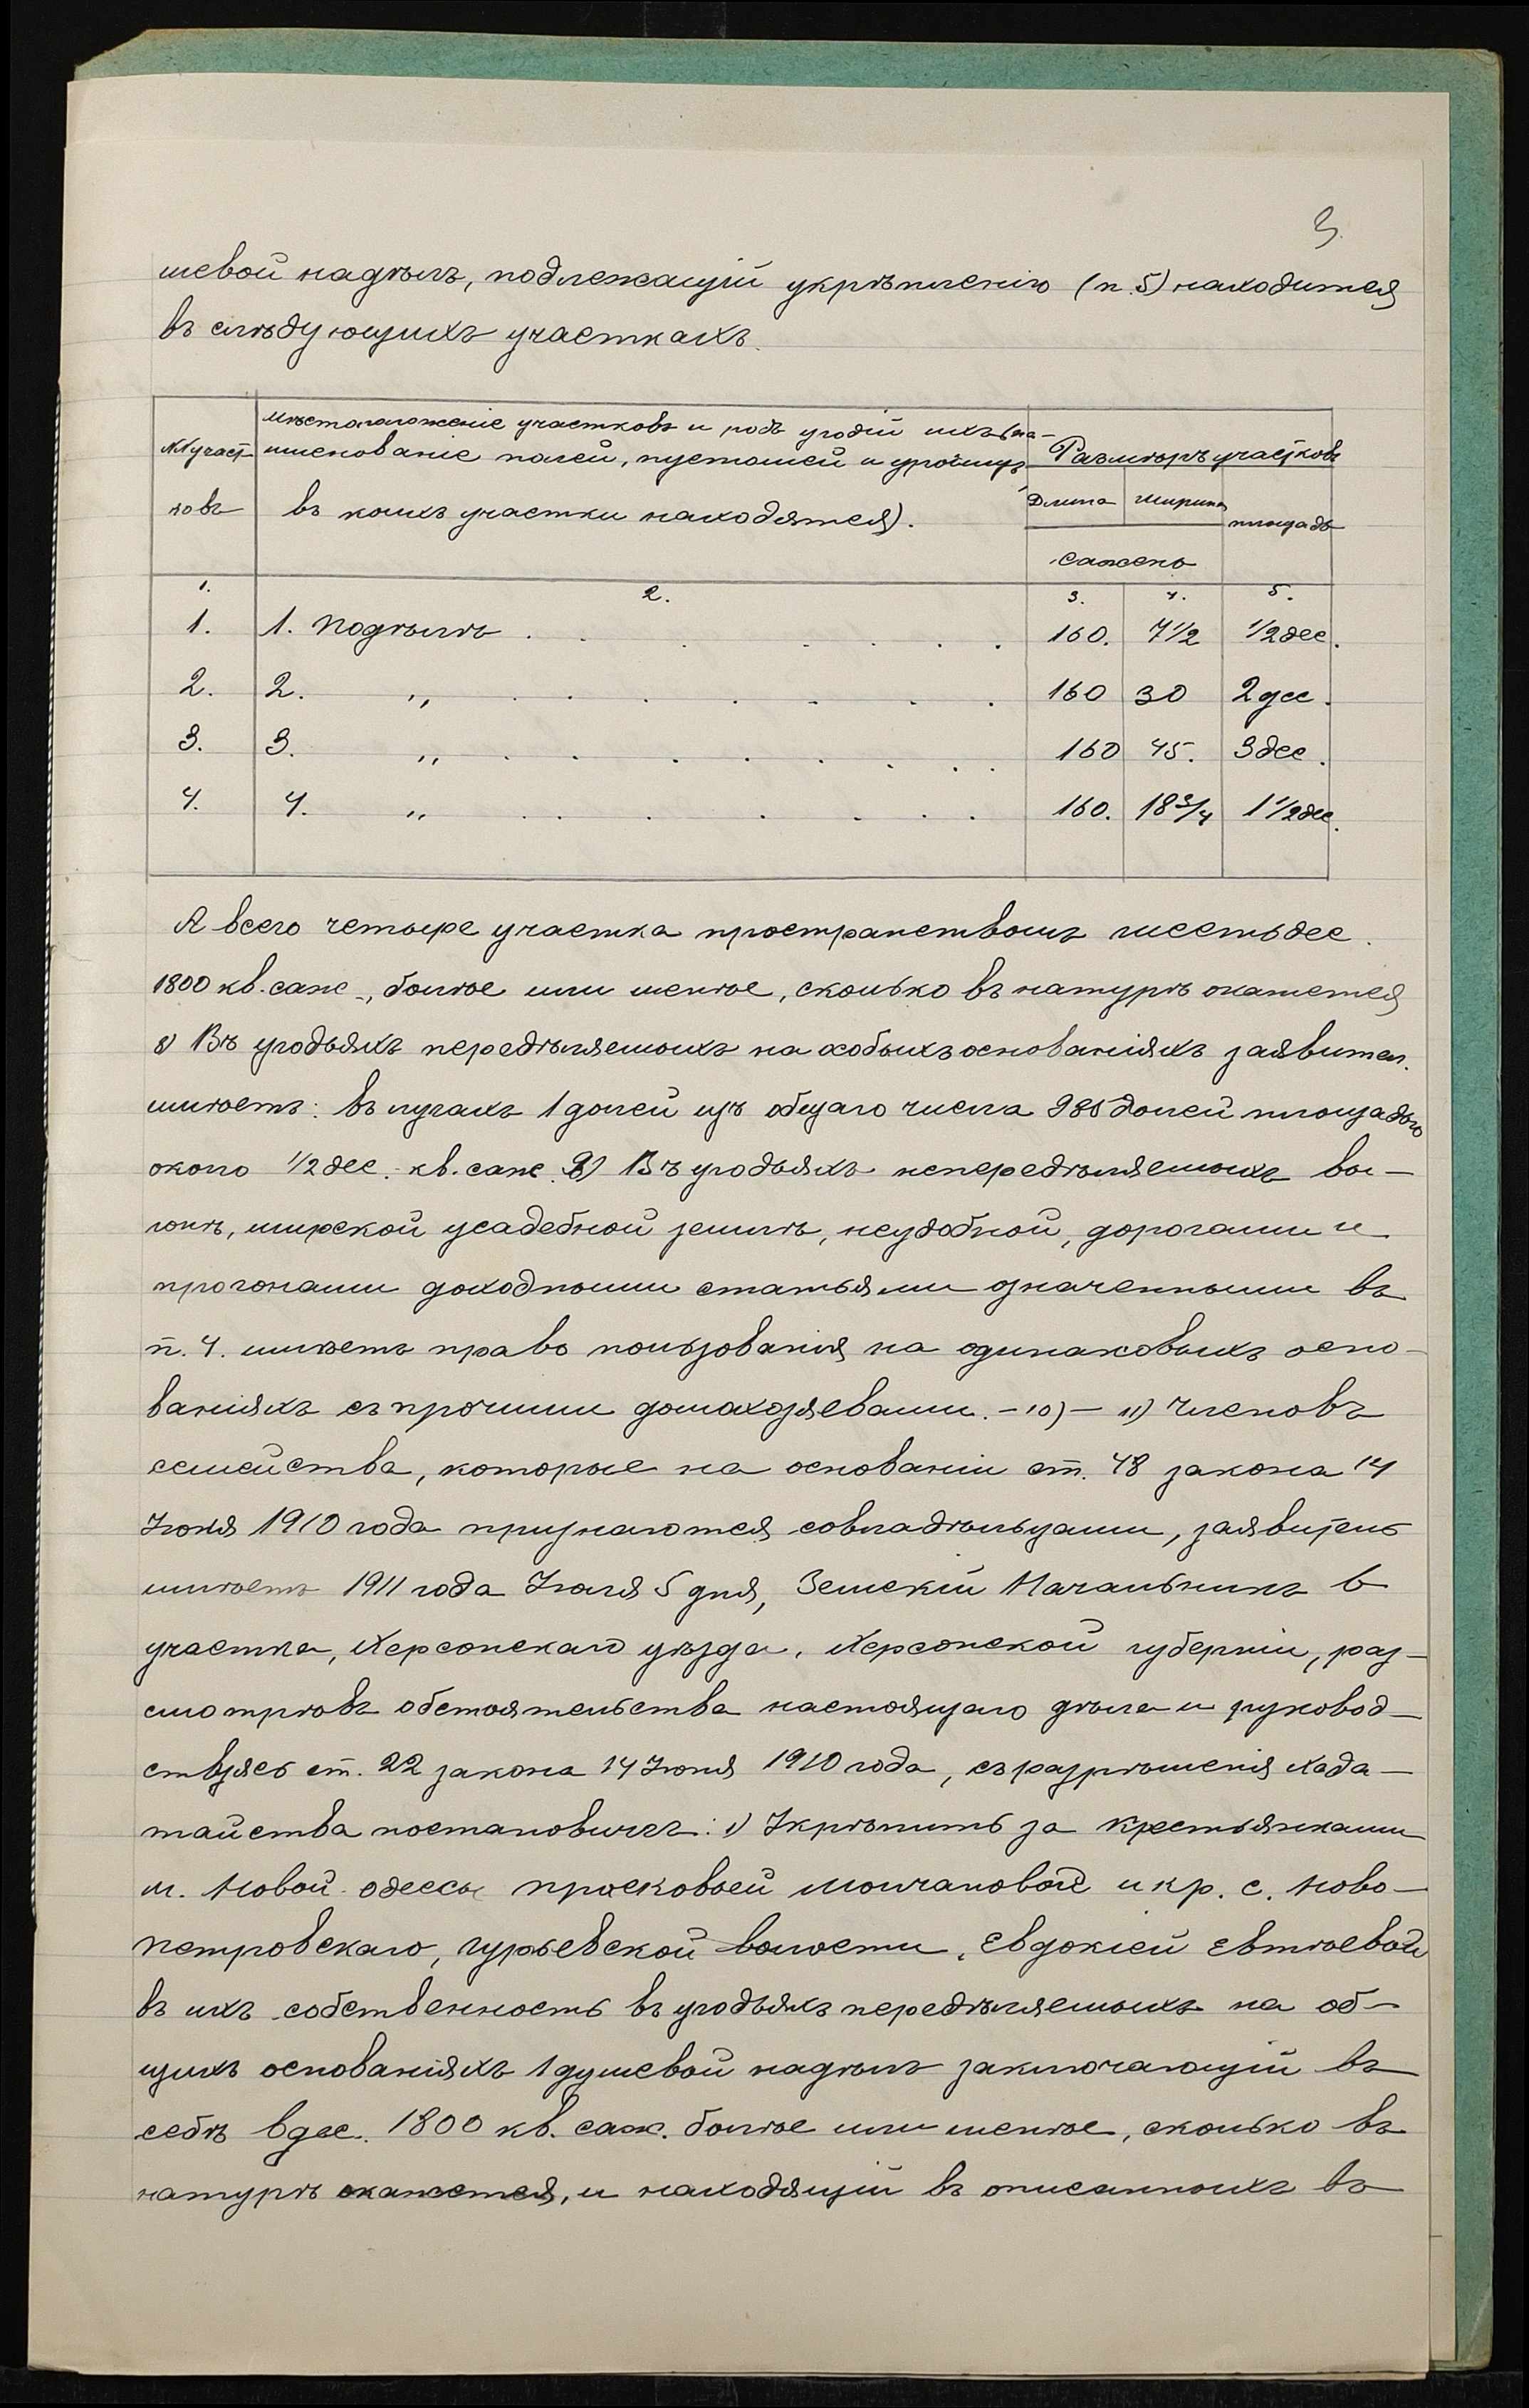 3.
шевой надѣлъ, подлежащій укрѣпленію (п. 5) находится
въ слѣдующихъ участкахъ.
№№ участ- | Мѣстоположеніе участковъ и родъ угодій ихъ (на- | Размѣръ участковъ
ковъ | именованіе полей, пустошей и урочищъ | Длина | Ширина | площадь
въ коихъ участки находятся). | сажень
1. | 2. | 3. | 4. | 5.
1. | 1. Подѣлъ . . . . . . | 160. | 7 1/2 | 1/2 дес.
2. | 2. „ . . . . . . . | 160 | 30 | 2 дес.
3. | 3. „ . . . . . . . . | 160 | 45. | 3 дес.
4. | 4. „ . . . . . . | 160. | 18 3/4 | 1 1/2 дес.
А всего четыре участка пространствомъ шесть дес.
1800 кв. саж., болѣе или менѣе, сколько въ натурѣ окажется
8) Въ угодьяхъ передѣляемыхъ на особыхъ основаніяхъ заявител.
имѣетъ: въ лугахъ 1 долей изъ общаго числа 985 долей площадью
около 1/2 дес. кв. саж. 9) Въ угодьяхъ непередѣляемыхъ вы-
гонѣ, мирской усадебной землѣ, неудобной, дорогами и
прогонами доходными статьями означенными въ
п. 4. имѣетъ право пользованія на одинаковыхъ осно-
ваніяхъ съ прочими домохозяевами. - 10) - 11) Членовъ
семейства, которые на основаніи ст. 48 закона 14
Іюня 1910 года признаются совладѣльцами, заявитель
имѣетъ 1911 года Іюля 5 дня, Земскій Начальникъ 6
участка, Херсонскаго уѣзда, Херсонской губерніи, раз-
смотрѣвъ обстоятельства настоящаго дѣла и руковод-
ствуясь ст. 22 закона 14 Іюня 1910 года, съ разрѣшенія хода-
тайства постановилъ: 1) Укрѣпить за крестьянками
м. Новой Одессы Прасковьей Молчановой и кр. с. Ново-
петровскаго, Гурьевской волости, Евдокіей Евтѣевой
въ ихъ собственность въ угодьяхъ передѣляемыхъ на об-
щихъ основаніяхъ 1 душевой надѣлъ заключающій въ
себѣ 6 дес. 1800 кв. саж. болѣе или менѣе, сколько въ
натурѣ окажется, и находящій въ описанныхъ въ